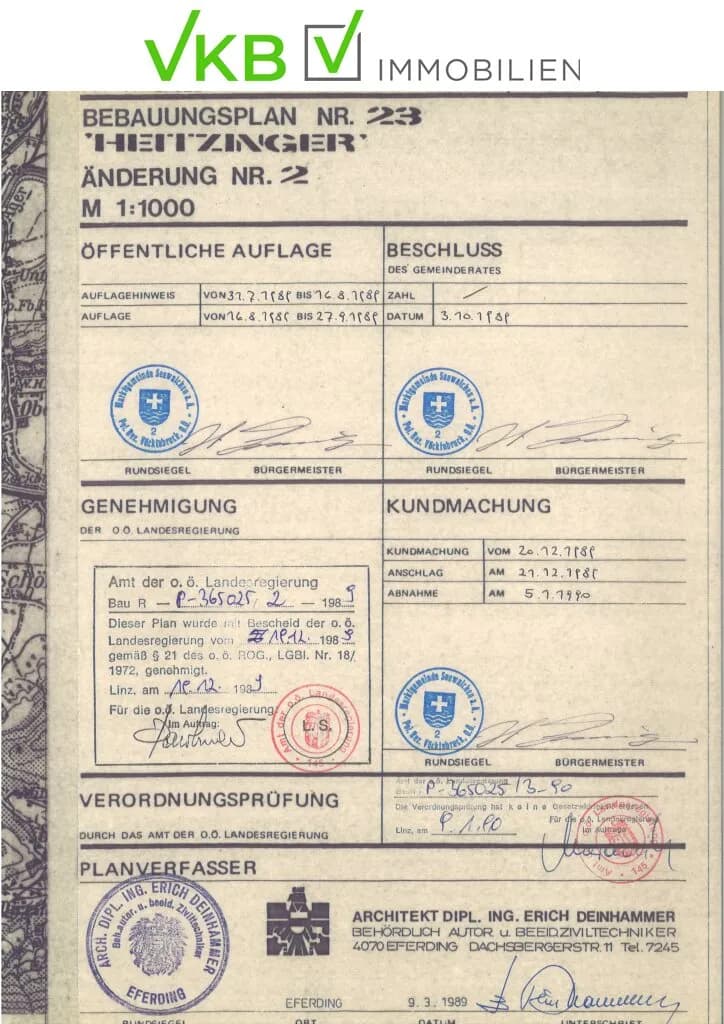 VKB IMMOBILIEN
BEBAUUNGSPLAN NR. 23
'HEITZINGER'
ÄNDERUNG NR. 2
M 1:1000
ÖFFENTLICHE AUFLAGE
AUFLAGEHINWEIS VON 31.7.1989 BIS 16.8.1989
AUFLAGE VON 16.8.1989 BIS 27.9.1989
BESCHLUSS
DES GEMEINDERATES
ZAHL /
DATUM 3.10.1989
Marktgemeinde Seewalchen a.A.
2
Pol. Bez. Vöcklabruck, O.Ö.
RUNDSIEGEL BÜRGERMEISTER
Marktgemeinde Seewalchen a.A.
2
Pol. Bez. Vöcklabruck, O.Ö.
RUNDSIEGEL BÜRGERMEISTER
GENEHMIGUNG
DER O.Ö. LANDESREGIERUNG
Amt der o. ö. Landesregierung
Bau R — P-365025/2 — 1989
Dieser Plan wurde mit Bescheid der o. ö.
Landesregierung vom 19.12. 1989
gemäß § 21 des o. ö. ROG., LGBl. Nr. 18/
1972, genehmigt.
Linz, am 19.12. 1989
Für die o.ö. Landesregierung:
Im Auftrag:
Amt der o.ö. Landesregierung
L. S.
145
KUNDMACHUNG
KUNDMACHUNG VOM 20.12.1989
ANSCHLAG AM 21.12.1989
ABNAHME AM 5.1.1990
Marktgemeinde Seewalchen a.A.
2
Pol. Bez. Vöcklabruck, O.Ö.
RUNDSIEGEL BÜRGERMEISTER
VERORDNUNGSPRÜFUNG
DURCH DAS AMT DER O.Ö. LANDESREGIERUNG
Amt der o.ö. Landesregierung
P-365025/3-90
Die Verordnungsprüfung hat keine Gesetzwidrigkeit ergeben.
Für die o.ö. Landesregierung
Linz, am 9.1.90 Im Auftrage
145
PLANVERFASSER
ARCH. DIPL. ING. ERICH DEINHAMMER
Beh. autor. u. beeid. Ziviltechniker
EFERDING
ARCHITEKT DIPL. ING. ERICH DEINHAMMER
BEHÖRDLICH AUTOR. u. BEEID. ZIVILTECHNIKER
4070 EFERDING DACHSBERGERSTR. 11 Tel. 7245
EFERDING 9. 3. 1989
RUNDSIEGEL ORT DATUM UNTERSCHRIFT